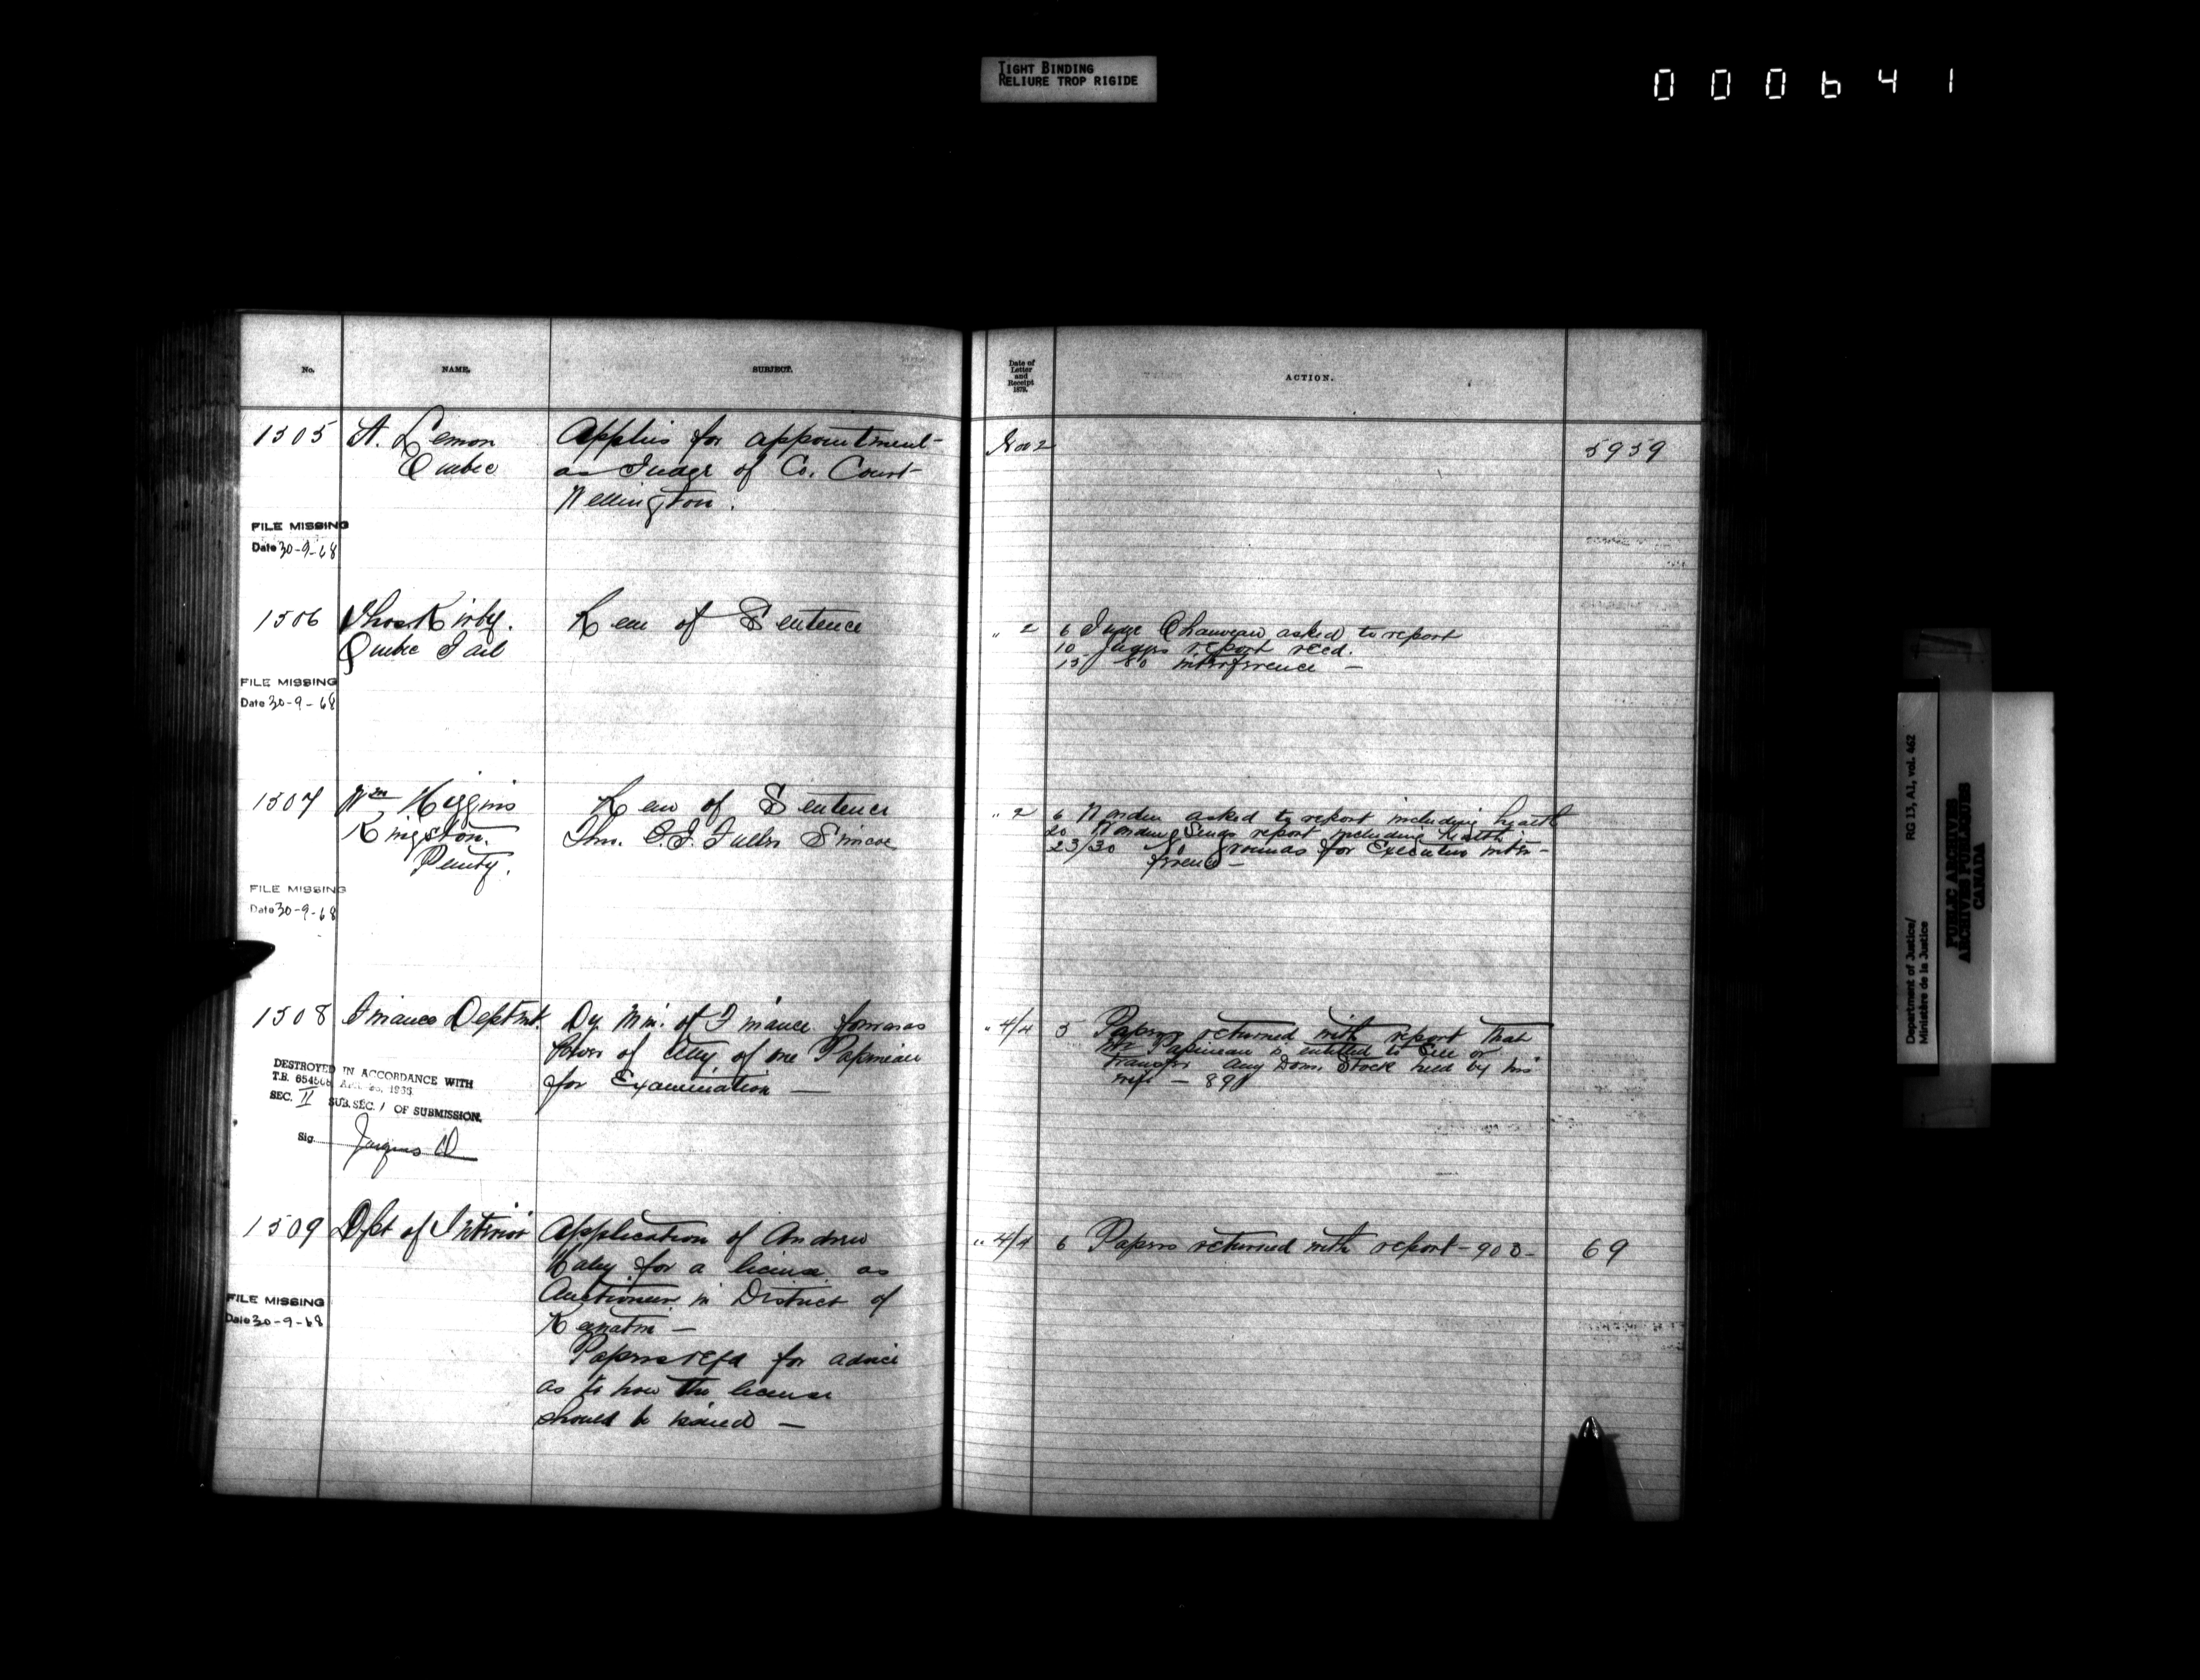 TIGHT BINDING
RELIURE TROP RIGIDE
000641
No.
NAME.
SUBJECT.
Date of
Letter
and
Receipt
187
ACTION.
1505
A. Lemon
Quebec
Applies for appointment
as Judge of Co. Court
Wellington.
Nov 2
5959
FILE MISSING
Date 30-9-68
1506
Thos Kirby.
Quebec Jail
Rem of Sentence
" 2
6 Judge Chauveau asked to report
10 Judges report recd.
15 No interference —
FILE MISSING
Date 30-9-68
1507
Wm Higgins
Kingston.
Penty.
Rem of Sentence
Thro. C. J. Fuller Simcoe
" 2
6 Warden asked to report including health
20 Warden Sends report including health
23/30 No grounds for Executive inter-
ference —
FILE MISSING
Date 30-9-68
1508
Finance Deptmt.
Dy Min. of Finance forwards
Power of Atty of one Papineau
for Examination —
" 4/4
5 Papers returned with report that
Mr Papineau is entitled to Sell or
transfer any Dom. Stock held by his
wife — 891
DESTROYED IN ACCORDANCE WITH
T.B. 654508
SEC. II SUB.SEC. 1 OF SUBMISSION.
Sig.
1509
Dept of Interior
Application of Andrew
for a license as
Auctioneer in District of
Keewatin —
Papers refd for advice
as to how the license
should be issued —
" 4/4
6 Papers returned with report - 903 -
69
FILE MISSING
Date 30-9-68
Department of Justice/
Ministère de la Justice
RG 13, A1, vol. 462
PUBLIC ARCHIVES
ARCHIVES PUBLIQUES
CANADA